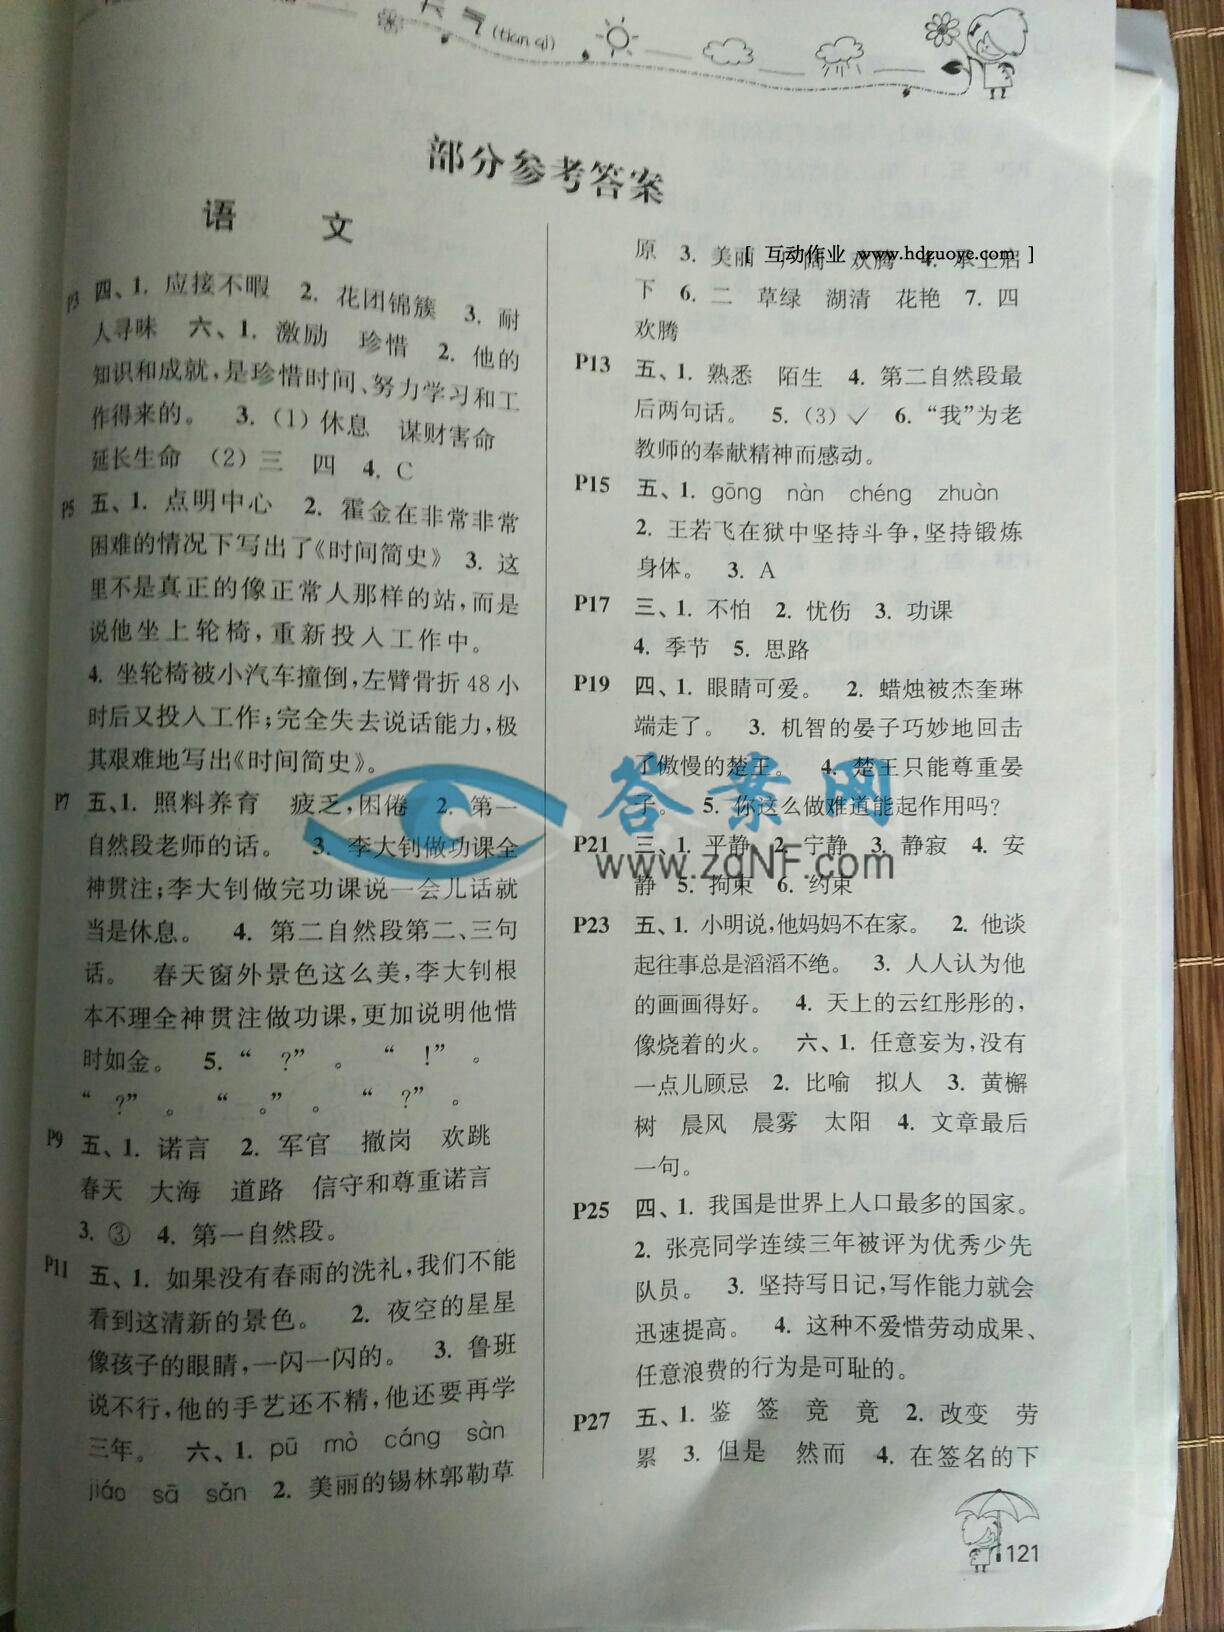 天气(tian qi)
部分参考答案
语 文
P3 四、1. 应接不暇 2. 花团锦簇 3. 耐
人寻味 六、1. 激励 珍惜 2. 他的
知识和成就,是珍惜时间、努力学习和工
作得来的。 3. (1)休息 谋财害命
延长生命 (2)三 四 4. C
P5 五、1. 点明中心 2. 霍金在非常非常
困难的情况下写出了《时间简史》 3. 这
里不是真正的像正常人那样的站,而是
说他坐上轮椅,重新投入工作中。
4. 坐轮椅被小汽车撞倒,左臂骨折48小
时后又投入工作;完全失去说话能力,极
其艰难地写出《时间简史》。
P7 五、1. 照料养育 疲乏,困倦 2. 第一
自然段老师的话。 3. 李大钊做功课全
神贯注;李大钊做完功课说一会儿话就
当是休息。 4. 第二自然段第二、三句
话。 春天窗外景色这么美,李大钊根
本不理全神贯注做功课,更加说明他惜
时如金。 5. “ ?” 。 “ !” 。
“ ?” 。 “ 。” 。 “ ?” 。
P9 五、1. 诺言 2. 军官 撤岗 欢跳
春天 大海 道路 信守和尊重诺言
3. ③ 4. 第一自然段。
P11 五、1. 如果没有春雨的洗礼,我们不能
看到这清新的景色。 2. 夜空的星星
像孩子的眼睛,一闪一闪的。 3. 鲁班
说不行,他的手艺还不精,他还要再学
三年。 六、1. pū mò cáng sàn
jiáo sā sǎn 2. 美丽的锡林郭勒草
原 3. 美丽 欢腾 4. 承上启
[ 互动作业 www.hdzuoye.com ]
下 6. 二 草绿 湖清 花艳 7. 四
欢腾
P13 五、1. 熟悉 陌生 4. 第二自然段最
后两句话。 5. (3)✓ 6. “我”为老
教师的奉献精神而感动。
P15 五、1. gōng nàn chéng zhuàn
2. 王若飞在狱中坚持斗争,坚持锻炼
身体。 3. A
P17 三、1. 不怕 2. 忧伤 3. 功课
4. 季节 5. 思路
P19 四、1. 眼睛可爱。 2. 蜡烛被杰奎琳
端走了。 3. 机智的晏子巧妙地回击
了傲慢的楚王。 4. 楚王只能尊重晏
子。 5. 你这么做难道能起作用吗?
答案网
www.zqNF.com
P21 三、1. 平静 2. 宁静 3. 静寂 4. 安
静 5. 拘束 6. 约束
P23 五、1. 小明说,他妈妈不在家。 2. 他谈
起往事总是滔滔不绝。 3. 人人认为他
的画画得好。 4. 天上的云红彤彤的,
像烧着的火。 六、1. 任意妄为,没有
一点儿顾忌 2. 比喻 拟人 3. 黄槲
树 晨风 晨雾 太阳 4. 文章最后
一句。
P25 四、1. 我国是世界上人口最多的国家。
2. 张亮同学连续三年被评为优秀少先
队员。 3. 坚持写日记,写作能力就会
迅速提高。 4. 这种不爱惜劳动成果、
任意浪费的行为是可耻的。
P27 五、1. 鉴 签 竞 竟 2. 改变 劳
累 3. 但是 然而 4. 在签名的下
121